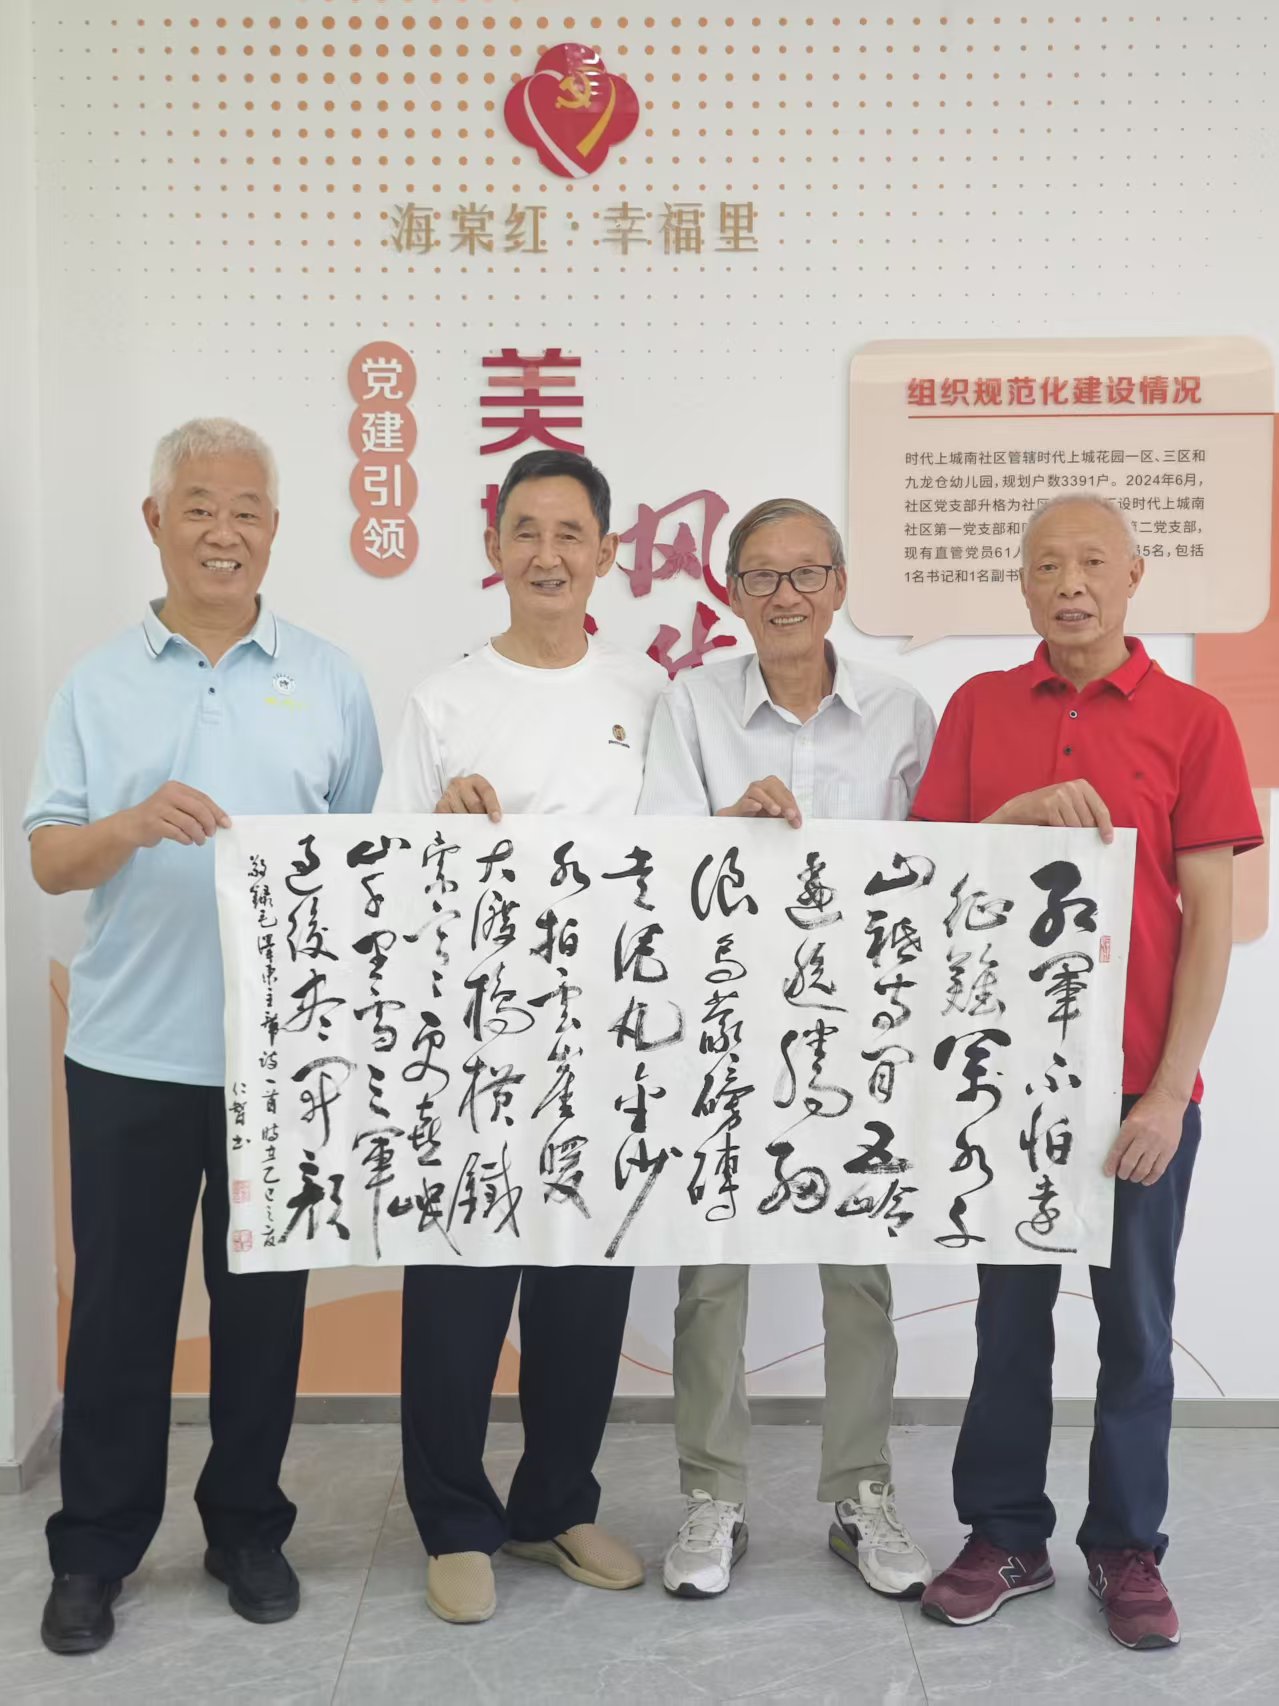 海棠红·幸福里
党建引领
美
风华
组织规范化建设情况
时代上城南社区管辖时代上城花园一区、三区和
九龙仓幼儿园，规划户数3391户。2024年6月，
社区党支部升格为社区 设时代上城南
社区第一党支部和 第二党支部，
现有直管党员61 5名，包括
1名书记和1名副书
红軍不怕遠
征難萬水千
山祗等閒五嶺
逶迤騰細
浪烏蒙磅礡
走泥丸金沙
水拍雲崖暖
大渡橋橫鐵
索寒更喜岷
山千里雪三軍
過後盡開顏
敬錄毛澤東主席詩一首時在乙巳之夏
仁智书